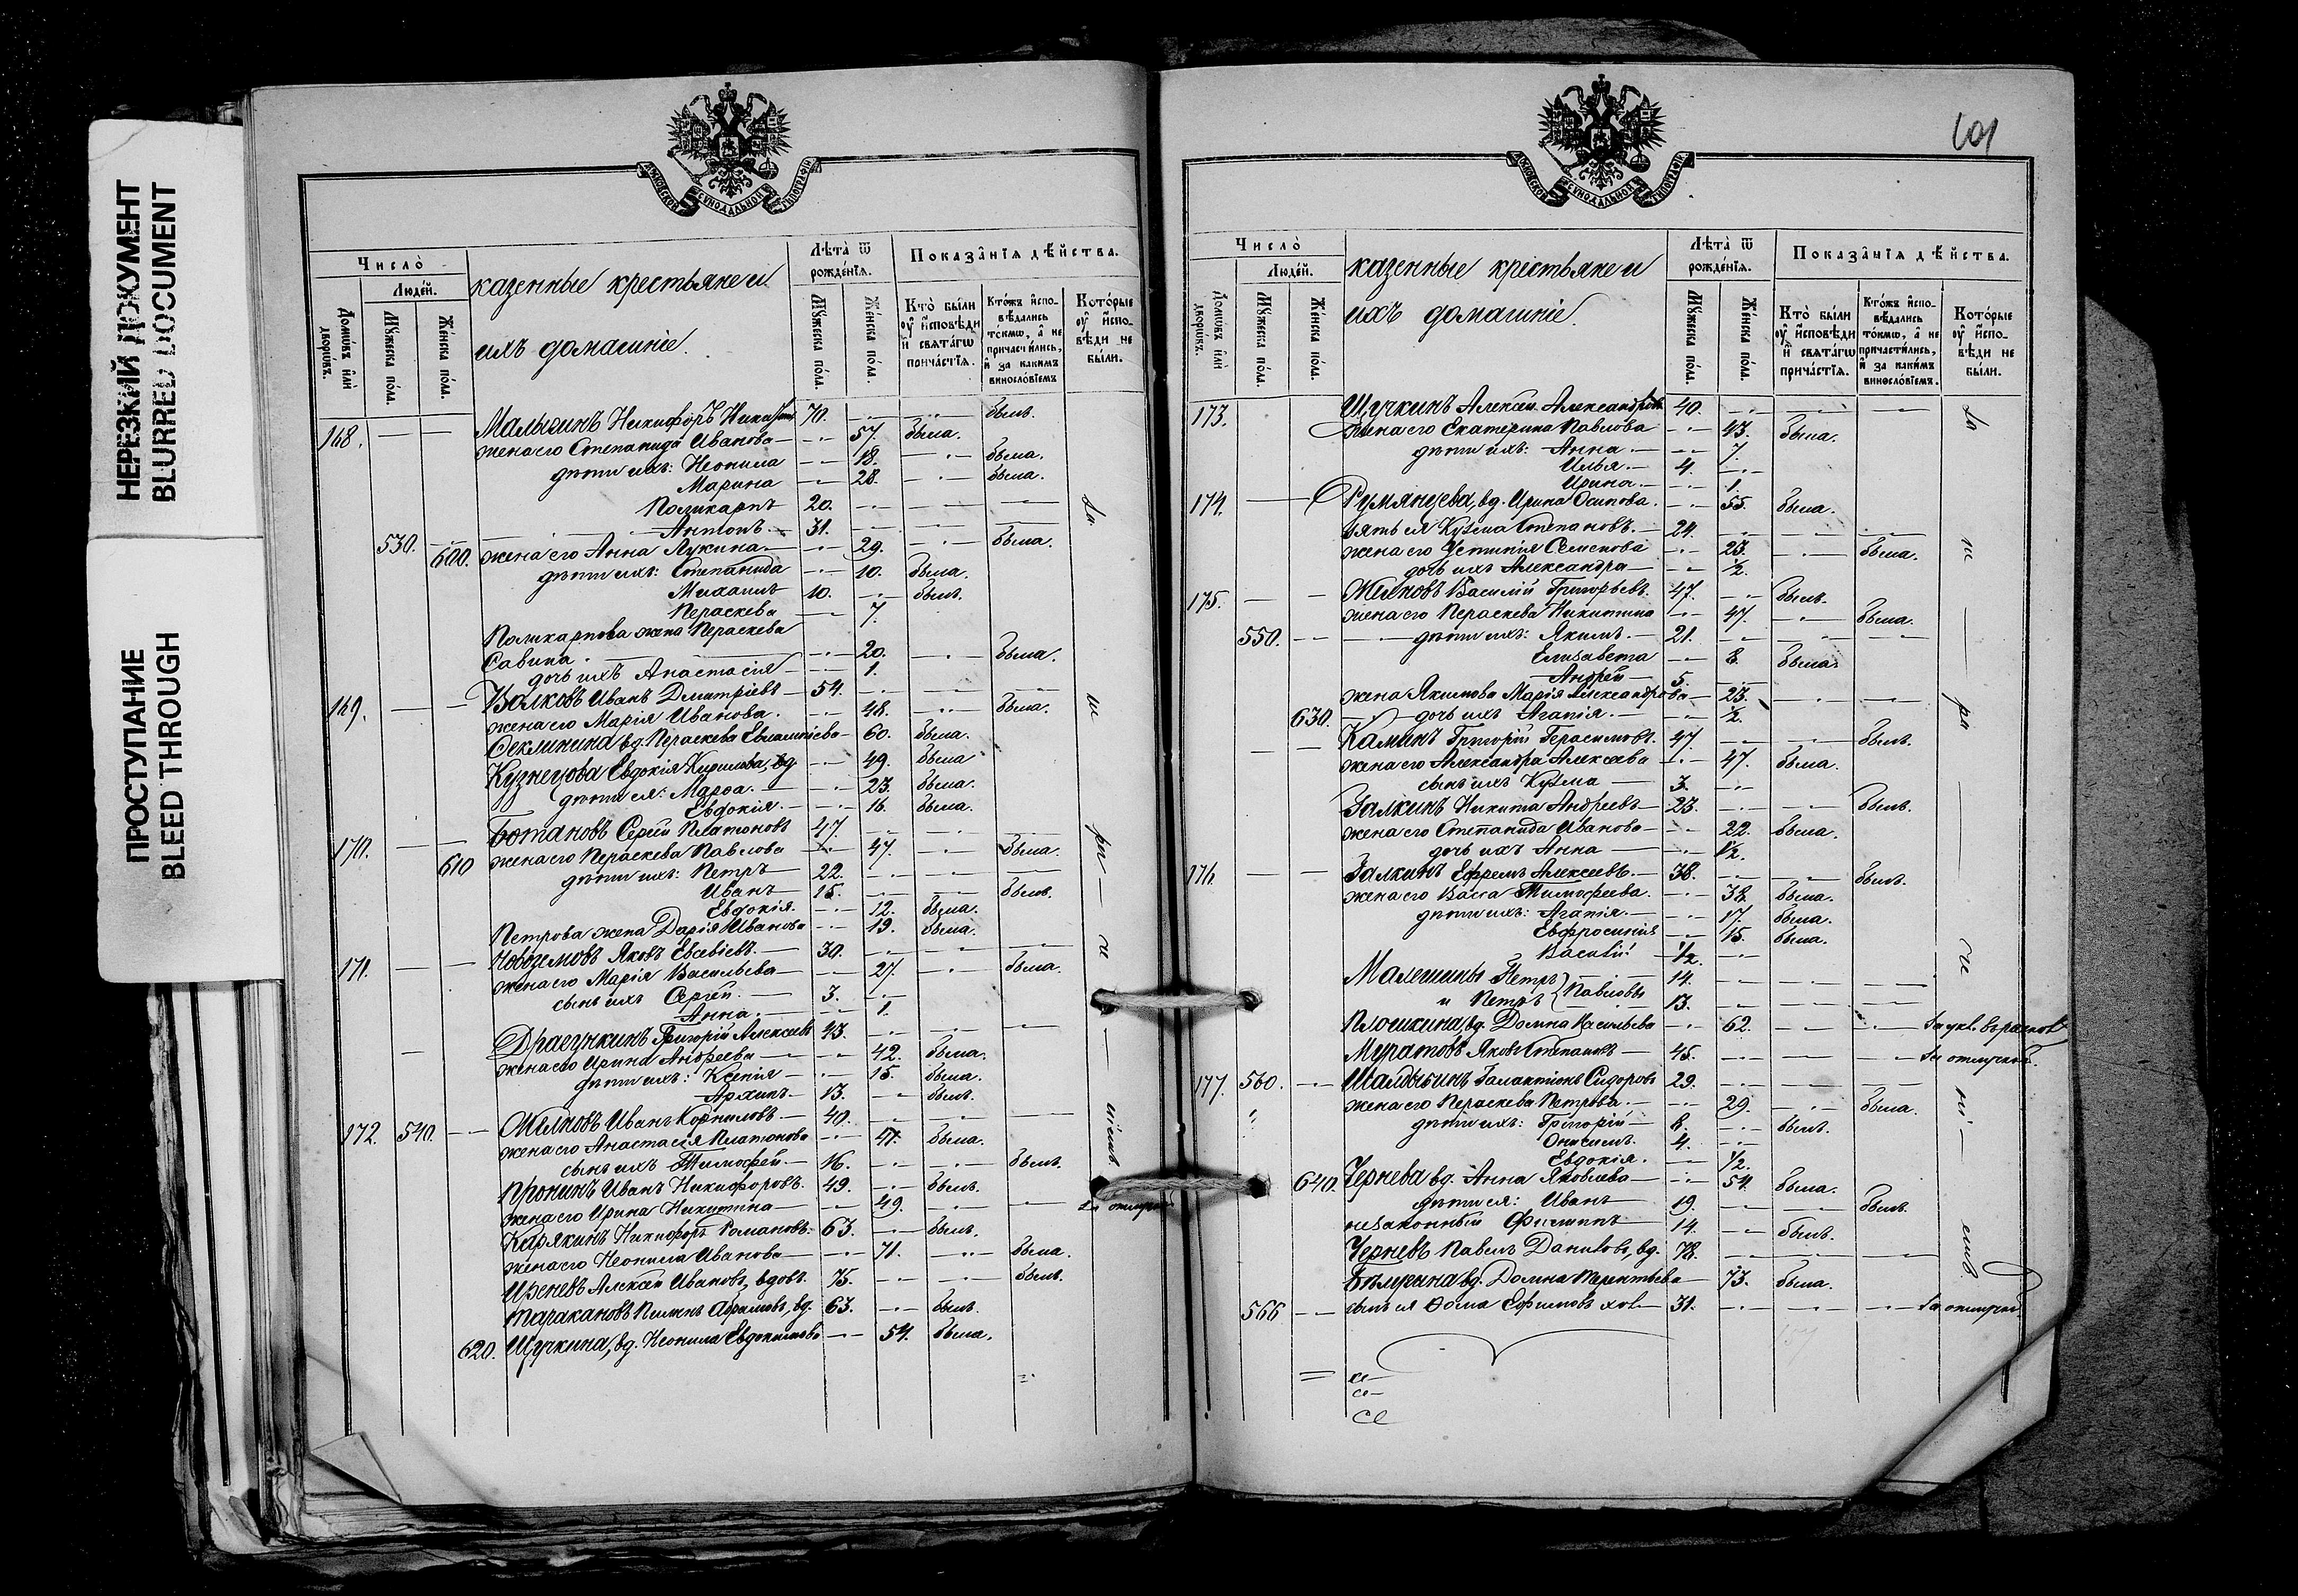 НЕРЕЗКИЙ ДОКУМЕНТ
BLURRED DOCUMENT
ПРОСТУПАНИЕ
BLEED THROUGH
МОСКОВСКОЙ СѴНОДАЛЬНОЙ ТИПОГРАФІИ
Число̀
Людéй.
Домѡ́въ и҆лѝ дворѡ́въ.
Мꙋ́жеска по́ла.
Же́нска по́ла.
казенные крестьяне и
ихъ домашніе.
Лѣ́та ѿ рожде́нїѧ.
Мꙋ́жеска по́ла.
Же́нска по́ла.
Показа̂нїѧ дѣ́йства.
Кто̀ бы́ли ᲂу҆ и҆́сповѣди и҆ свѧта́гѡ прича́стїѧ.
Кто́жъ и҆сповѣ́дались то́кмѡ, а҆ не причасти́лись, и҆ за каки́мъ винослⷪ҇вїемъ
Кото́рые ᲂу҆ и҆́сповѣди не бы́ли.
168. Малыгинъ Никифоръ 70. былъ.
жена его Степанида Иванова 57. была.
дѣти ихъ: Неонила 18. была.
Марина 28. была.
Поликарпъ 20. За
Антонъ 31.
530. 600. жена его Анна Лукина 29. была.
дѣти ихъ: Степанида 10. была.
Михаилъ 10. былъ.
Пераскева 7.
Поликарпова жена Пераскева
Савина 20. была.
дочь ихъ Анастасія 1.
169. Волковъ Иванъ Дмитріевъ 54.
жена его Марія Иванова. 48. была.
вд. Пераскева 60. была.
Кузнецова Евдокія Кирилова, вд 49. была
дѣти ея: Марѳа. 23. была.
Евдокія. 16. была.
170. Ботановъ Сергѣй Платоновъ 47.
610 жена его Пераскева Павлова 47. была.
дѣти ихъ: Петръ 22.
Иванъ 15. былъ.
Евдокія. 12. была.
Петрова жена Дарія Иванова 19. была.
171. Новоземовъ Яковъ Евсевіевъ. 30.
жена его Марія Васильева 27. была.
сынъ ихъ Сергѣй. 3.
Анна. 1.
Драгункинъ Григорій Алексѣевъ 43.
жена его Ирина Андреева 42. была.
дѣти ихъ: Ксенія 15. была.
Архипъ 13. былъ.
172. 540. Иванъ Корниловъ 40.
жена его Анастасія Платонова 41. была.
сынъ ихъ Тимофей. 16. былъ.
Пронинъ Иванъ Никифоровъ. 49. былъ.
жена его Ирина Никитина 49. За отлучкой
Карякинъ Никифоръ Романовъ. 63. былъ.
жена его Неонила Иванова 71. была.
Алексѣй Ивановъ, вдовъ. 75. былъ.
Таракановъ Пименъ Абрамовъ, вд. 63. былъ.
620. Щучкина, вд. Неонила Евдокимова 54. была.
Число̀
Людéй.
Домѡ́въ и҆лѝ дворѡ́въ.
Мꙋ́жеска по́ла.
Же́нска по́ла.
казенные крестьяне и
ихъ домашніе.
Лѣ́та ѿ рожде́нїѧ.
Мꙋ́жеска по́ла.
Же́нска по́ла.
Показа̂нїѧ дѣ́йства.
Кто̀ бы́ли ᲂу҆ и҆́сповѣди и҆ свѧта́гѡ прича́стїѧ.
Кто́жъ и҆сповѣ́дались то́кмѡ, а҆ не причасти́лись, и҆ за каки́мъ винослⷪ҇вїемъ.
Кото́рые ᲂу҆ и҆́сповѣди не бы́ли.
173. Щучкинъ Алексѣй Александровъ 40. За
жена его Екатерина Павлова 43. была.
дѣти ихъ: Анна 7.
Илья 4.
Ирина. 1.
174. Румянцева, вд. Ирина Осипова. 55. была.
зять ея Кузма Степановъ. 24.
жена его Устинія Семенова 23. была.
дочь ихъ Александра ½.
175. Василій Григорьевъ. 47. былъ.
жена его Пераскева Никитина 47. была.
550. дѣти ихъ: Якимъ. 21.
Елисавета 8. была.
Андрей 5.
жена Якимова Марія Александрова 23.
630. дочь ихъ Агапія. ½.
Каминъ Григорій Герасимовъ. 47. былъ.
жена его Александра Алексѣева 47. была.
сынъ ихъ Кузма 3.
Залкинъ Никита Андреевъ 23. былъ.
жена его Степанида Иванова 22. была.
дочь ихъ Анна ½.
176. Залкинъ Ефремъ Алексѣевъ. 38. былъ.
жена его Васса Тимофеева. 38. была.
дѣти ихъ: Агапія. 17. была.
Евфросинія 15. была.
Василій ½.
Малешины Петръ 14.
и Петръ Павловы 13.
Плошкина, вд. Домна Васильева 62.
Муратовъ Яковъ Степановъ 45. За отлучкой.
177. 560. Шалдыбинъ Галактіонъ Сидоровъ 29.
жена его Пераскева Петрова. 29. была.
дѣти ихъ: Григорій 8. былъ.
Онисимъ. 4.
Евдокія. ½.
640. Чернева вд. Анна Яковлева 54. была.
дѣти ея: Иванъ 19. былъ.
незаконный Филиппъ 14. былъ.
Черневъ Павелъ Даниловъ, вд. 78.
вд. Домна 73. была.
566 сынъ ея Ѳома Ефимовъ хол. 31. За отлучкой